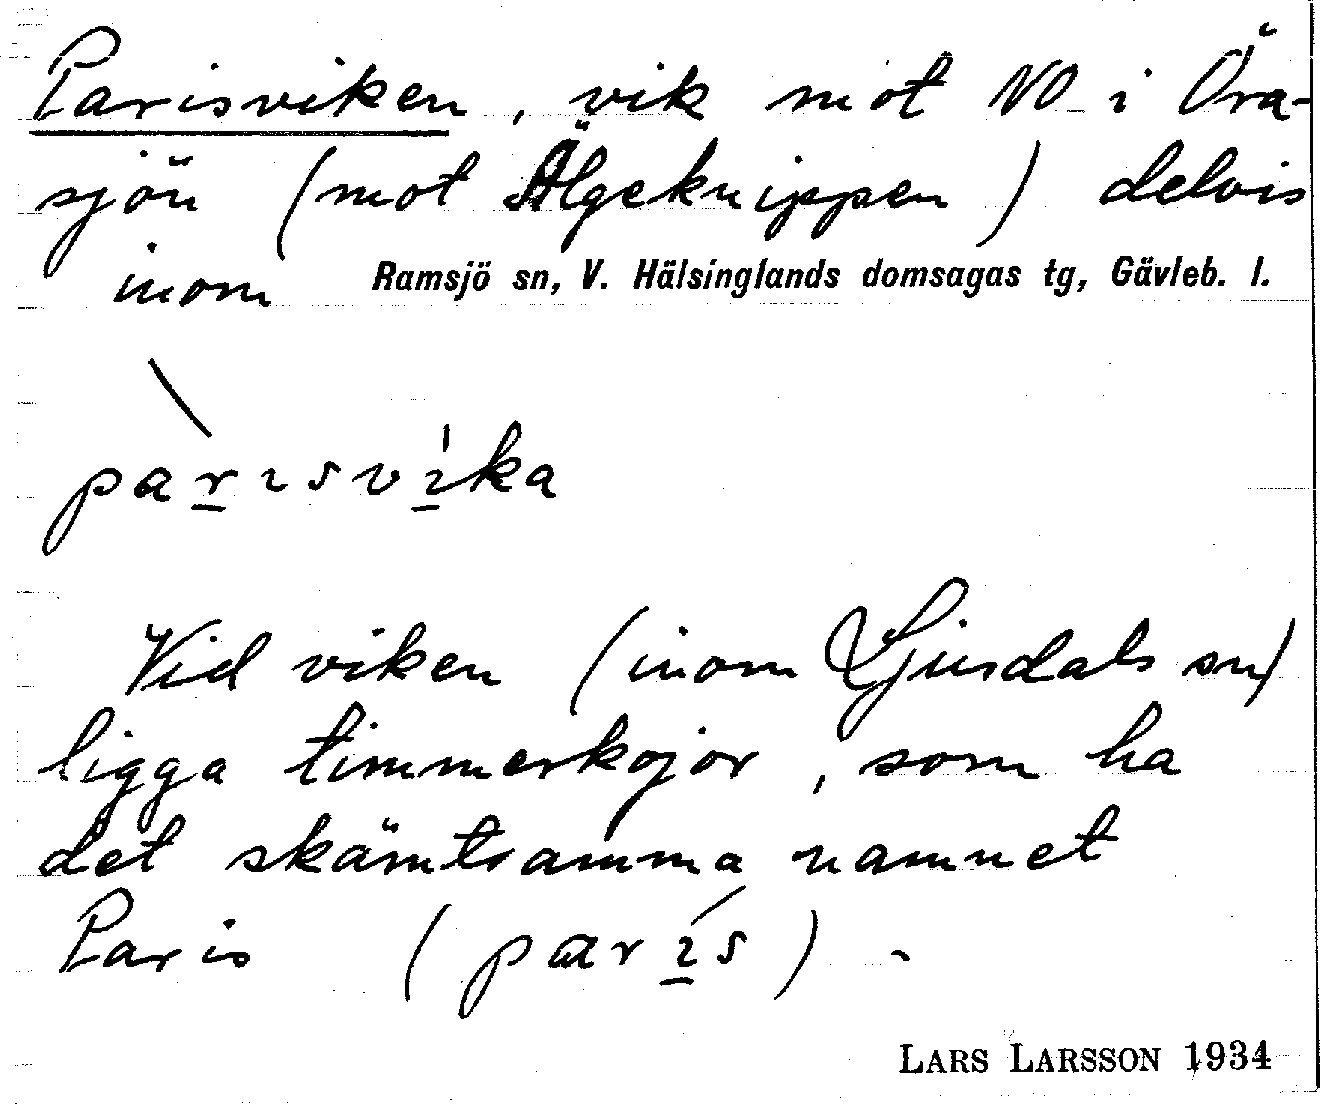 Parisviken, vik mot NO i Öra-
sjön (mot Älgeknippen) delvis
inom Ramsjö sn, V. Hälsinglands domsagas tg, Gävleb. l.
parısvıka
Vid viken (inom Ljusdals sn)
ligga timmerkojor, som ha
det skämtsamma namnet
Paris (parıs).
LARS LARSSON 1934